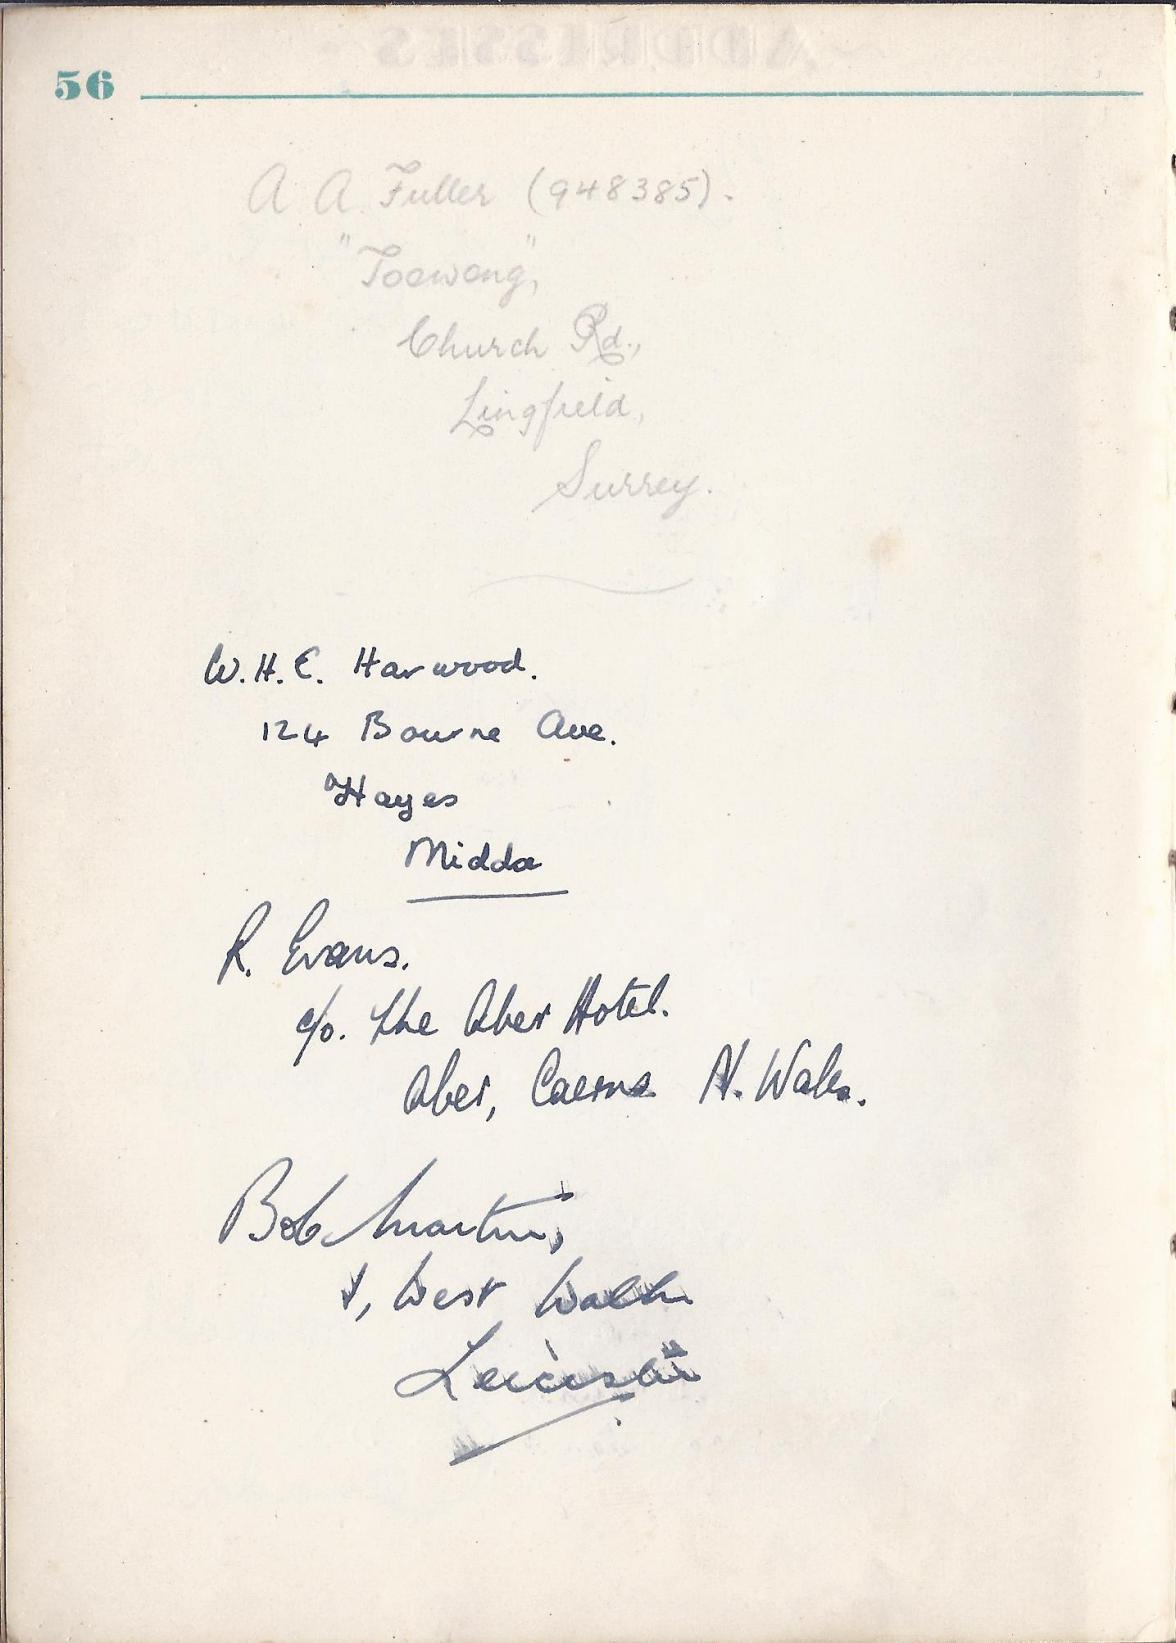 56
A A Fuller (948385).
"Toewong",
Church Rd.,
Lingfield,
Surrey.
W.H.E. Harwood.
124 Bourne Ave.
Hayes
Middx
R. Evans.
c/o. The Aber Hotel.
Aber, Caerns N. Wales.
Bob Martin,
1, West Walk
Leicester